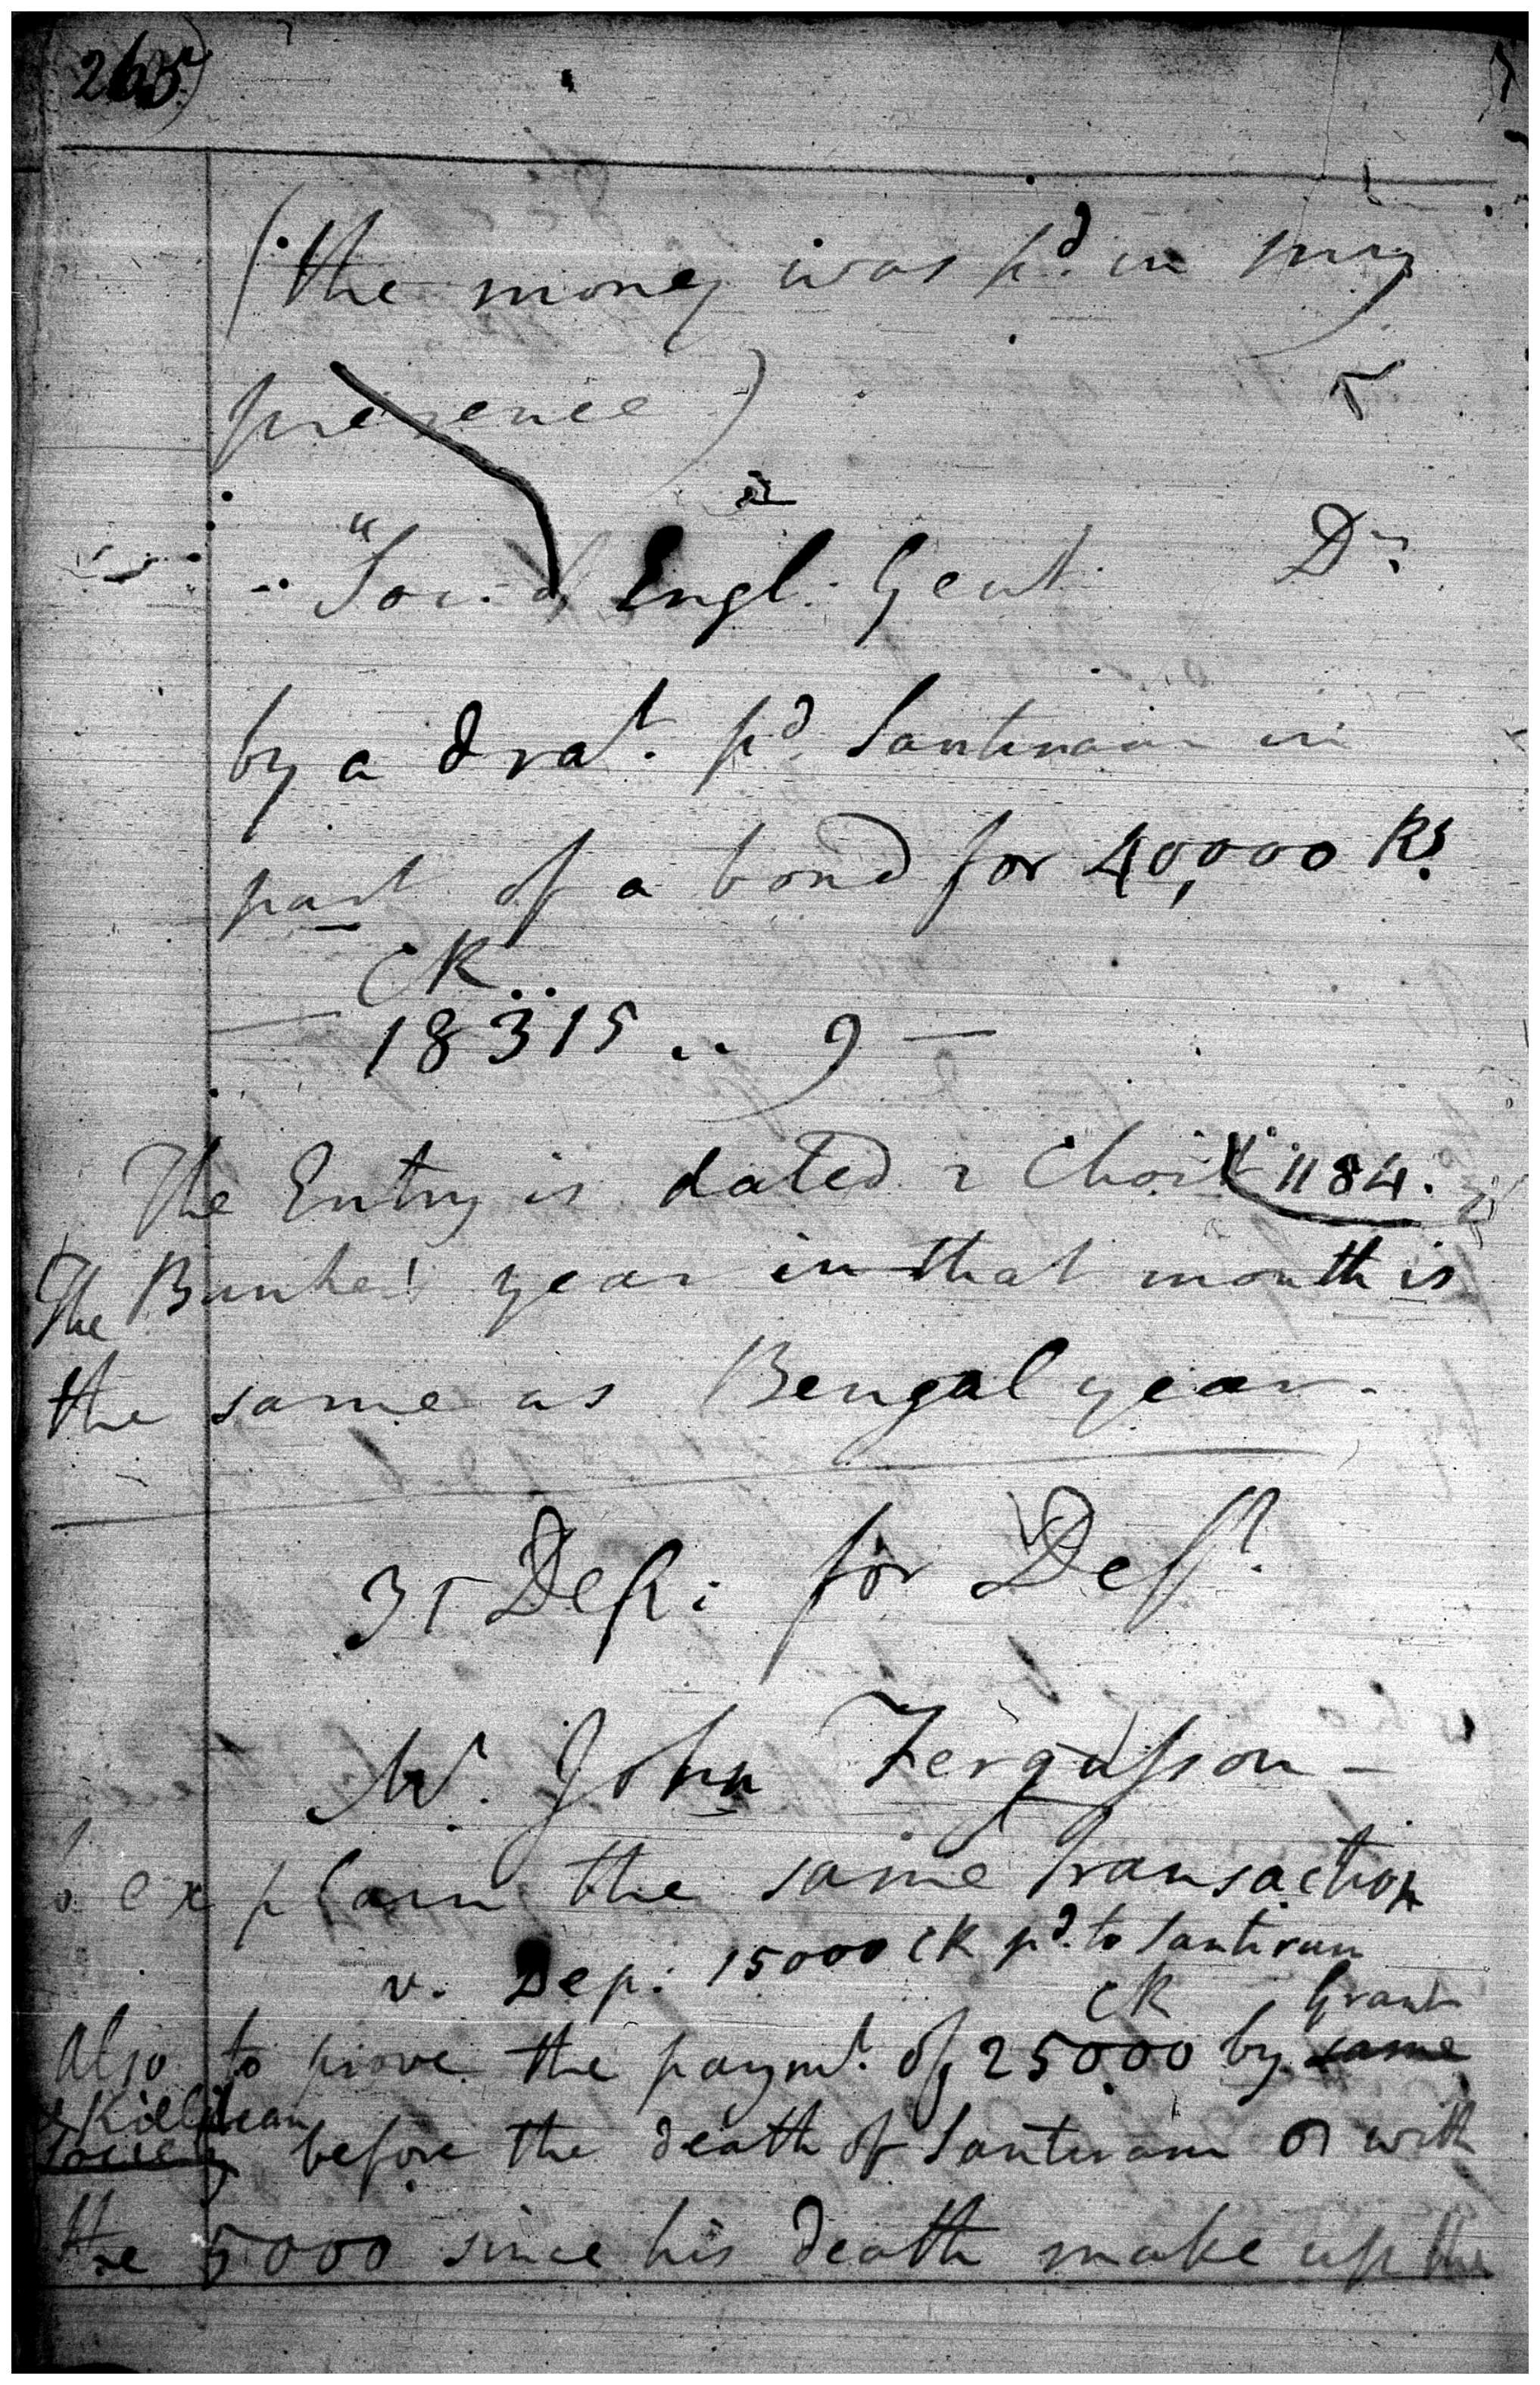 (the money was pd. in my
presence)
"Soc. of Engl. Gent. Dr.
by a draft. pd. Santiram in
part of a bond for 40,000 Rs.
CR
18315 .. 9 —
The Entry is dated 2 Choit 1184.
The Bunker's year in that month is
the same as Bengal year.
31 Dep: for Deft.
Mr. John Fergusson —
to explain the same transaction
v. Dep: 15000 CR pd. to Santiram
CR Grant
Also to prove the paymt. of 25000 by same
& Killican
Society before the death of Santiram & with
the 5000 since his death make up the